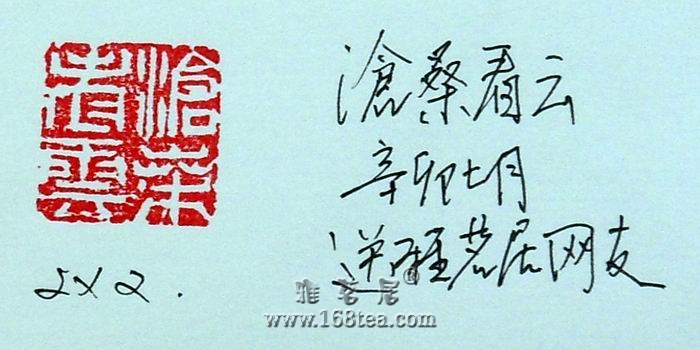 沧桑看云
滄桑看云
辛卯七月
送雅茗居网友
2×2.
雅茗居®
www.168tea.com